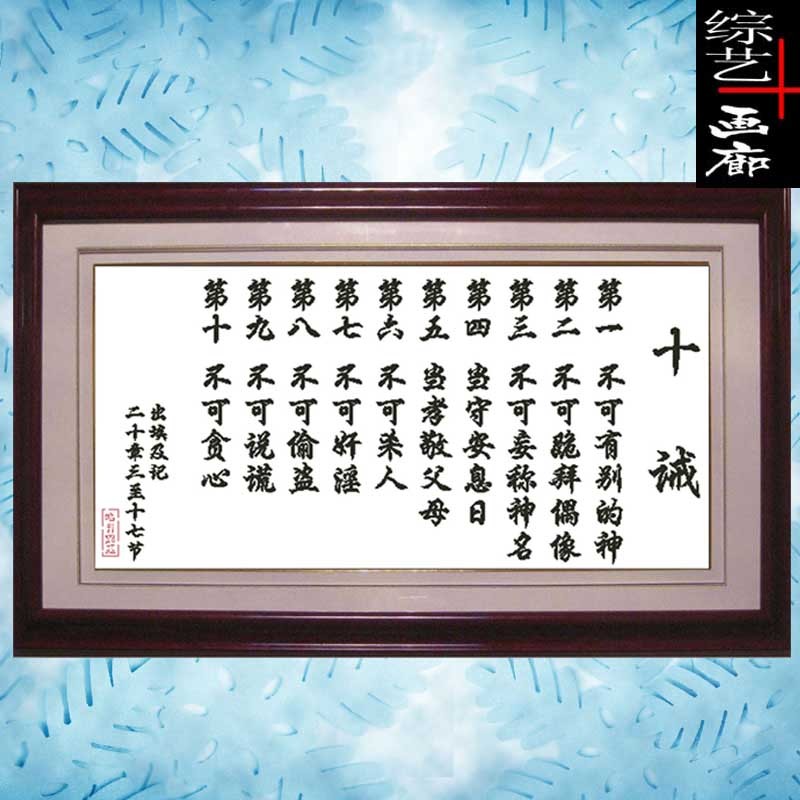 综艺
画廊
十诫
第一 不可有别的神
第二 不可跪拜偶像
第三 不可妄称神名
第四 当守安息日
第五 当孝敬父母
第六 不可杀人
第七 不可奸淫
第八 不可偷盗
第九 不可说谎
第十 不可贪心
出埃及记
二十章三至十七节